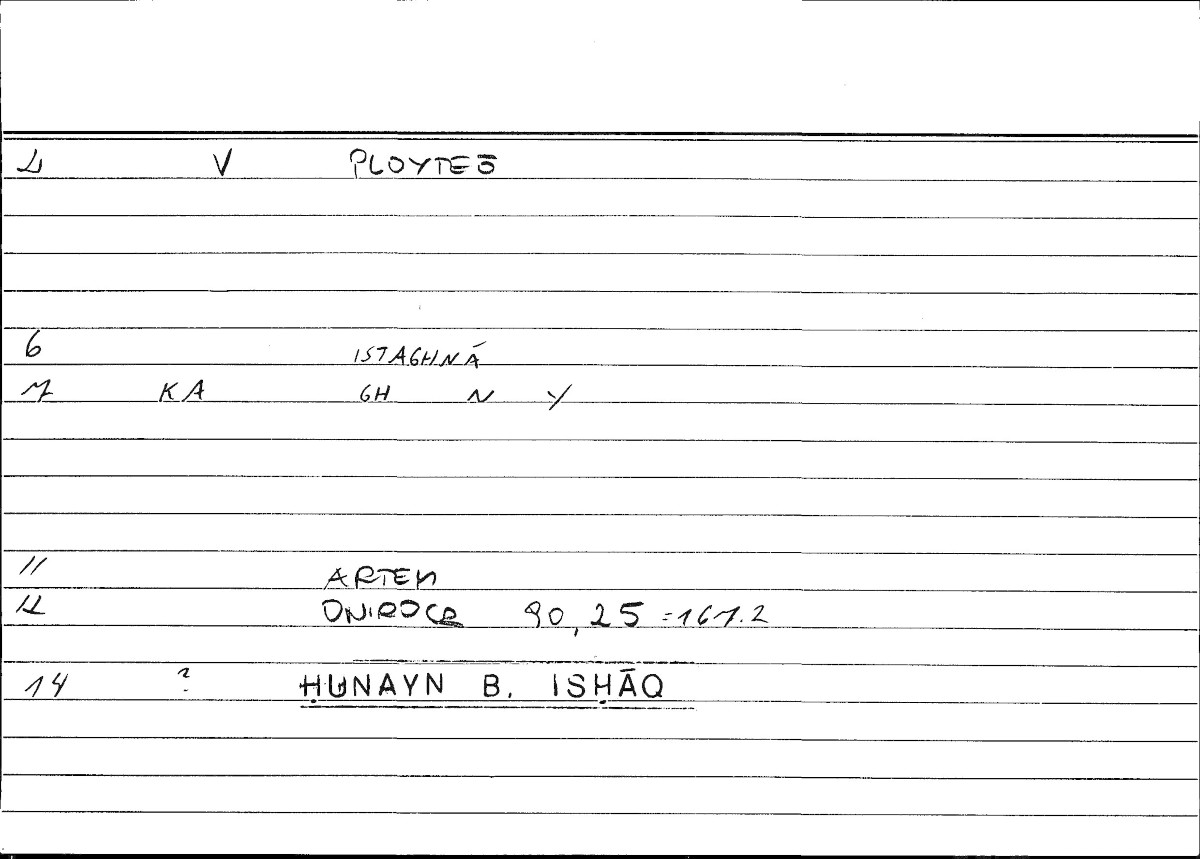 V PLOYTEŌ
6 ISTAGHNĀ
7 KA GH N Y
11 ARTEM
12 ONIROCR 90,25 = 167.2
14 ? ḤUNAYN B. ISḤĀQ